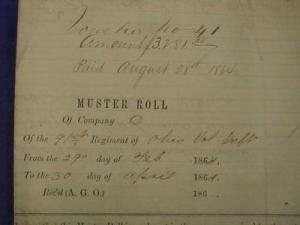 No 41
Amount
Paid August 28th 1864
MUSTER ROLL
Of Company D
Of the 91st Regiment of Ohio Vol Inft
From the 29th day of Feb 1864.
To the 30 day of April 1864.
Rec'd (A. G. O.) 186 .